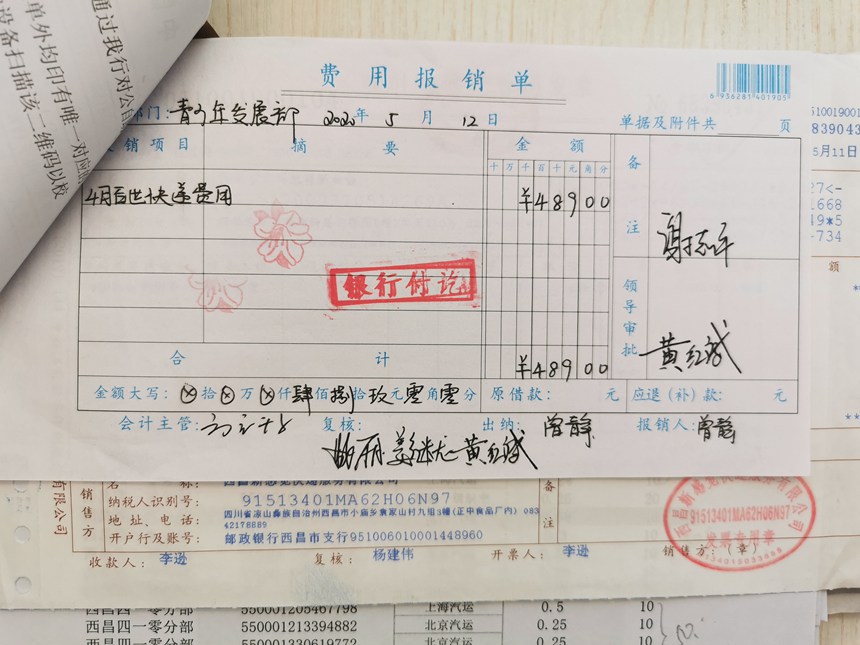 通过我行对公自
单外均印有唯一对应
设备扫描该二维码以校
费用报销单
6 936281 401905
部门：青少年发展部 2020年5月12日 单据及附件共 页
销项目 摘要 金额 备注
十万千百十元角分
4月百世快递费用 ¥48900
谢
银行付讫
领导审批 黄红斌
合计 ¥48900
金额大写：⊗拾⊗万⊗仟肆佰捌拾玖元零角零分 原借款： 元 应退（补）款： 元
会计主管： 复核： 出纳：曾静 报销人：曾静
姜继尤 黄红斌
51001900
839043
5月11日
27<-
1668
19*5
-734
额
有限公司
销售方
名称：西昌新感觉快递服务有限公司
纳税人识别号：91513401MA62H06N97
地址、电话：四川省凉山彝族自治州西昌市小庙乡袁家山村九组3幢(正中食品厂内) 083
42178889
开户行及账号：邮政银行西昌市支行951006010001448960
备注
收款人：李逊 复核：杨建伟 开票人：李逊 销售方：（章）
91513401MA62H06N97
发票专用章
西昌四一零分部 550001205467798 上海汽运 0.5 10
西昌四一零分部 550001213394882 北京汽运 0.25 10
西昌四一零分部 550001230619772 北京汽运 0.25 10